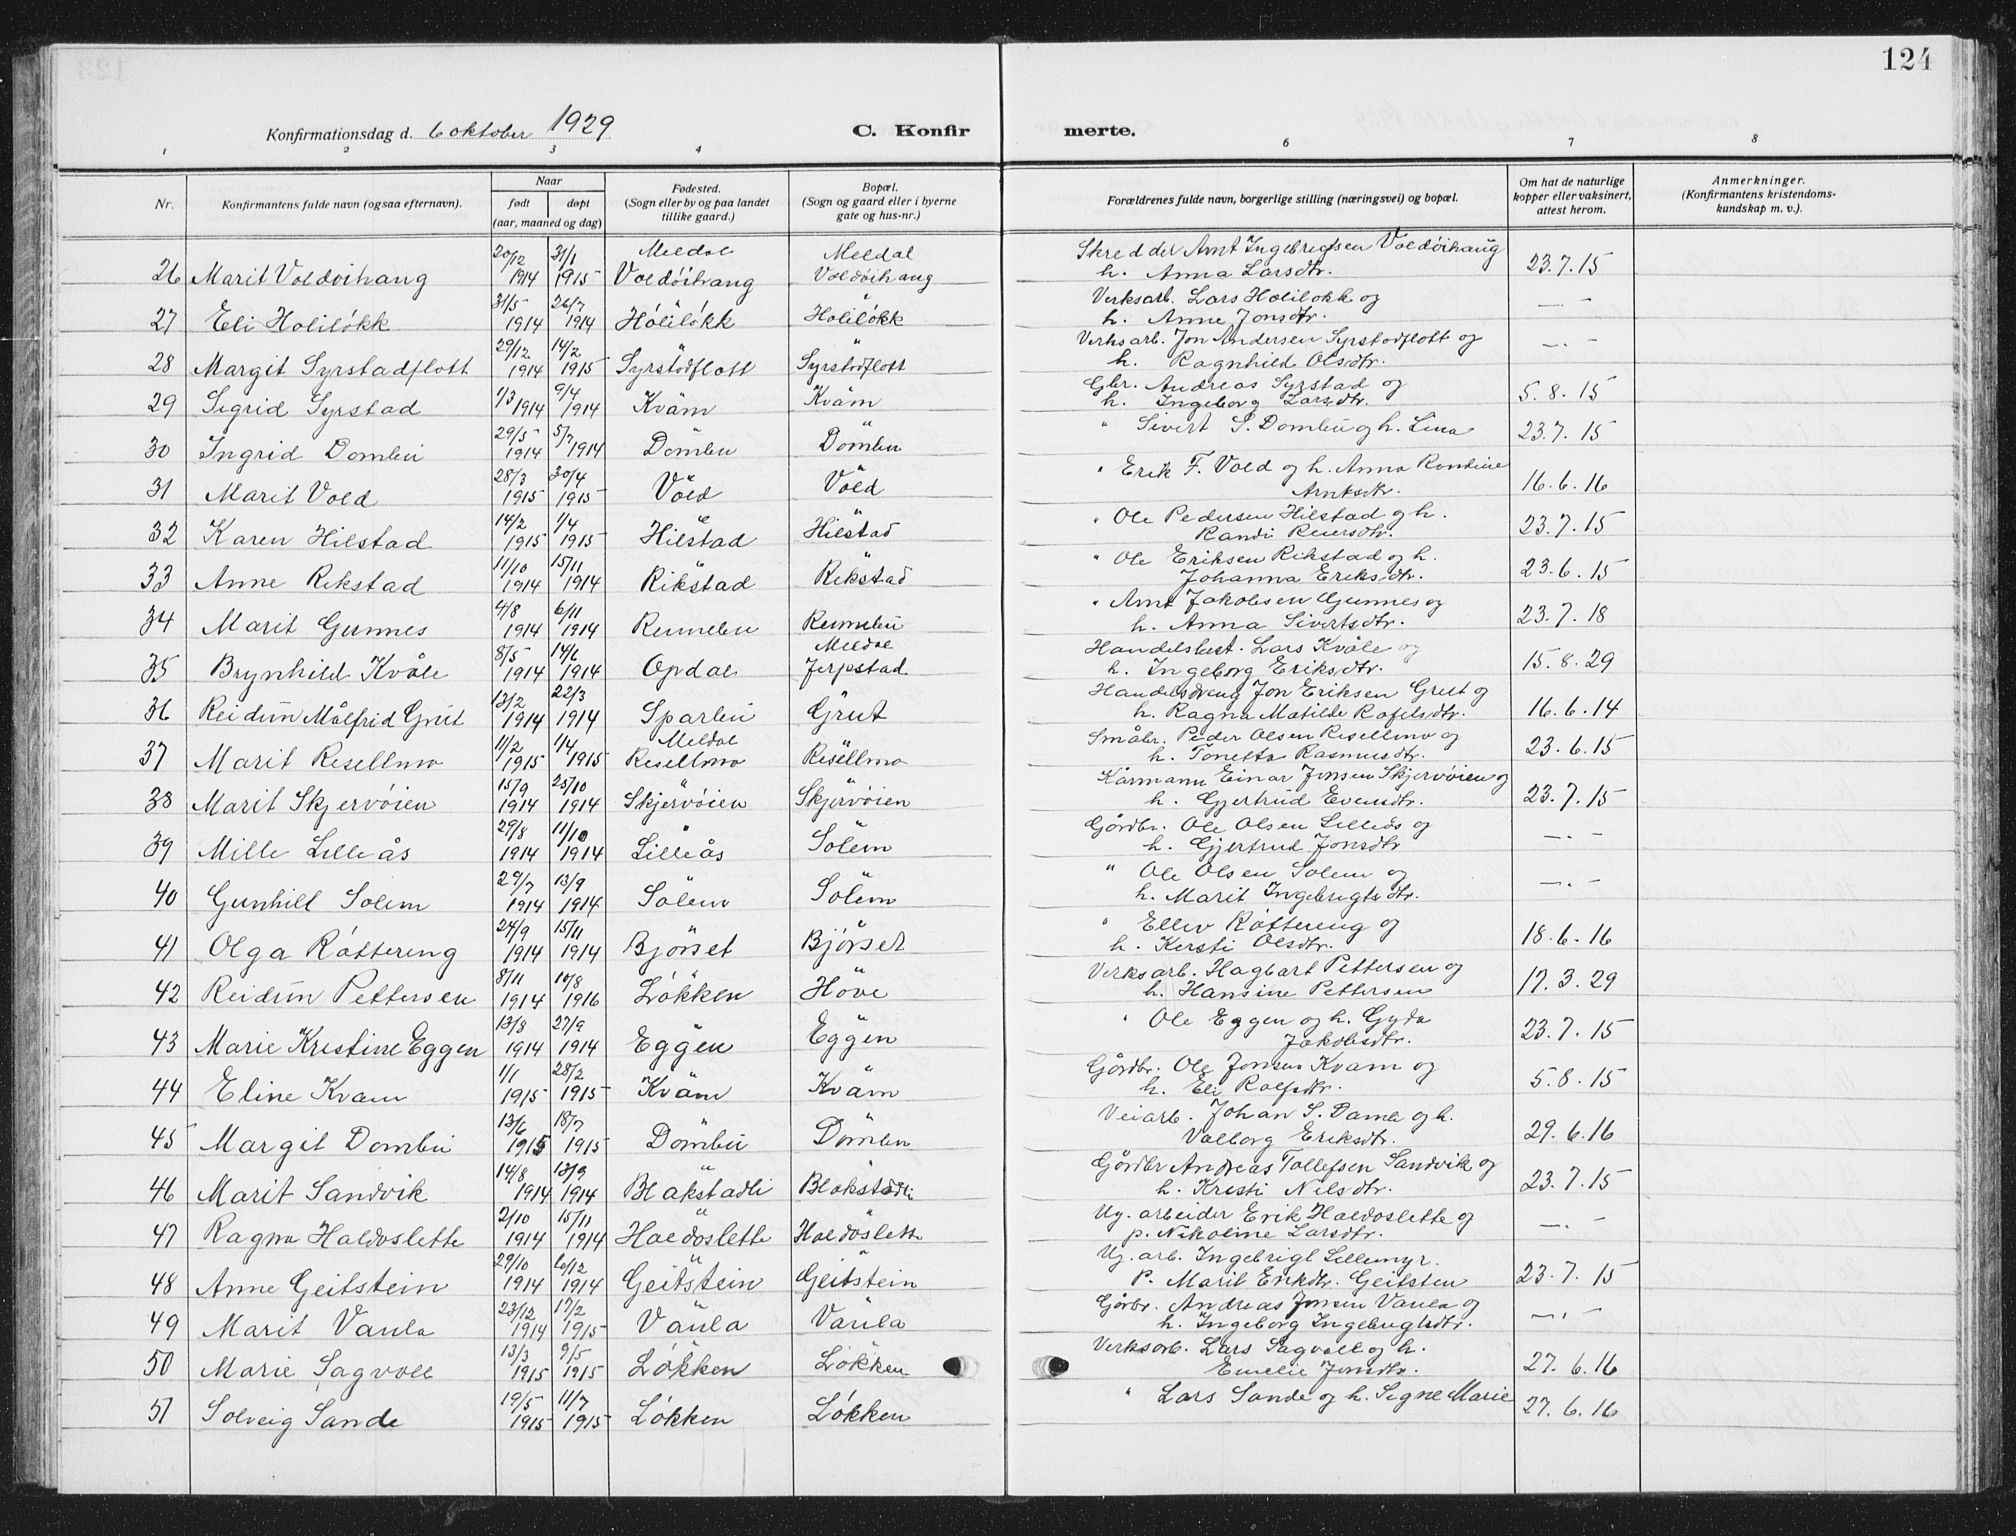 124
Konfirmationsdag d. 6 oktober 1929 C. Konfir merte.
1 2 3 4 6 7 8
Nr. Konfirmantens fulde navn (ogsaa efternavn). Naar født døpt (aar, maaned og dag) Fødested. (Sogn eller by og paa landet tillike gaard.) Bopæl. (Sogn og gaard eller i byerne gate og hus-nr.) Forældrenes fulde navn, borgerlige stilling (næringsvei) og bopæl. Om hat de naturlige kopper eller vaksinert, attest herom. Anmerkninger. (Konfirmantens kristendomskundskap m. v.).
26 Marit Voldøihaug 20/12 1914 31/1 1915 Meldal Voldøihaug Meldal Voldøihaug Skredder Arnt Ingebrigtsen Voldøihaug h. Anna Larsdtr. 23.7.15
27 Eli Holiløkk 31/5 1914 26/7 1914 Holiløkk Holiløkk Verksarb. Lars Holiløkk og h. Anne Jonsdtr. —.—
28 Margit Syrstadflott 29/12 1914 14/2 1915 Syrstadflott Syrstadflott Verksarb. Jon Andersen Syrstadflott og h. Ragnhild Olsdtr. —.—
29 Sigrid Syrstad 1/3 1914 9/4 1914 Kvam Kvam Gbr. Andreas Syrstad og h. Ingeborg Larsdtr. 5.8.15
30 Ingrid Dombu 29/5 1914 5/7 1914 Dombu Dombu " Sivert S. Dombu og h. Lina 23.7.15
31 Marit Vold 28/3 1915 30/4 1915 Vold Vold " Erik F. Vold og h. Anna Rondine Arntsdtr. 16.6.16
32 Karen Hilstad 14/2 1915 1/4 1915 Hilstad Hilstad " Ole Pedersen Hilstad og h. Randi Reiersdtr. 23.7.15
33 Anne Rikstad 11/10 1914 15/11 1914 Rikstad Rikstad " Ole Eriksen Rikstad og h. Johanna Eriksdtr. 23.6.15
34 Marit Gunnes 4/8 1914 6/11 1914 Rennebu Rennebu " Arnt Jakobsen Gunnes og h. Anna Sivertsdtr. 23.7.18
35 Brynhild Kvåle 8/5 1914 14/6 1914 Opdal Meldal Jerpstad Handelsbest. Lars Kvåle og h. Ingeborg Eriksdtr. 15.8.29
36 Reidun Målfrid Grut 13/2 1914 22/3 1914 Sparbu Grut Handelsdreng Jon Eriksen Grut og h. Ragna Matilde Rafelsdtr. 16.6.14
37 Marit Resellmo 11/2 1915 1/4 1915 Meldal Resellmo Resellmo Småbr. Peder Olsen Resellmo og h. Tonetta Rasmusdtr. 23.6.15
38 Marit Skjervøien 15/9 1914 25/10 1914 Skjervøien Skjervøien Kårmann Einar Jonsen Skjervøien og h. Gjertrud Evensdtr. 23.7.15
39 Mille Lilleås 29/8 1914 11/10 1914 Lilleås Solem Gårdbr. Ole Olsen Lilleås og h. Gjertrud Jonsdtr —.—
40 Gunhill Solem 29/7 1914 13/9 1914 Solem Solem " Ole Olsen Solem og h. Marit Ingebrigtsdtr. —.—
41 Olga Røttering 24/9 1914 15/11 1914 Bjørset Bjørset " Ellev Røttering og h. Kersti Olsdtr. 18.6.16
42 Reidun Pettersen 8/11 1914 10/8 1916 Løkken Hove Verksarb. Hagbart Pettersen og h. Hansine Pettersen 17.3.29
43 Marie Kristine Eggen 13/8 1914 27/9 1914 Eggen Eggen " Ole Eggen og h. Gyda Jakobsdtr. 23.7.15
44 Eline Kvam 1/1 1915 28/2 1915 Kvam Kvam Gårdbr. Ole Jonsen Kvam og h. Eli Rolfsdtr. 5.8.15
45 Margit Dombu 13/6 1915 18/7 1915 Dombu Dombu Veiarb. Johan S. Dombu og h. Valborg Eriksdtr. 29.6.16
46 Marit Sandvik 14/8 1914 13/9 1914 Blakstadli Blokstadli Gårdbr Andreas Tollefsen Sandvik og h. Kristi Nilsdtr. 23.7.15
47 Ragna Haldoslette 2/10 1914 15/11 1914 Haldoslette Haldoslette Ug. arbeider Erik Haldoslette og p. Nikoline Larsdtr. —.—
48 Anne Geitstein 29/10 1914 6/12 1914 Geitstein Geitstein Ug. arb. Ingebrigt Lillemyr. P. Marit Eriksdtr. Geitsten 23.7.15
49 Marit Vaula 23/12 1914 17/2 1915 Vaula Vaula Gårbr. Andreas Jonsen Vaula og h. Ingeborg Ingebrigtsdtr. —.—
50 Marie Sagvoll 13/3 1915 9/5 1915 Løkken Løkken Verksarb. Lars Sagvoll og h. Emelie Jonsdtr. 27.6.16
51 Solveig Sande 19/5 1915 11/7 1915 Løkken Løkken " Lars Sande og h. Signe Marie 27.6.16